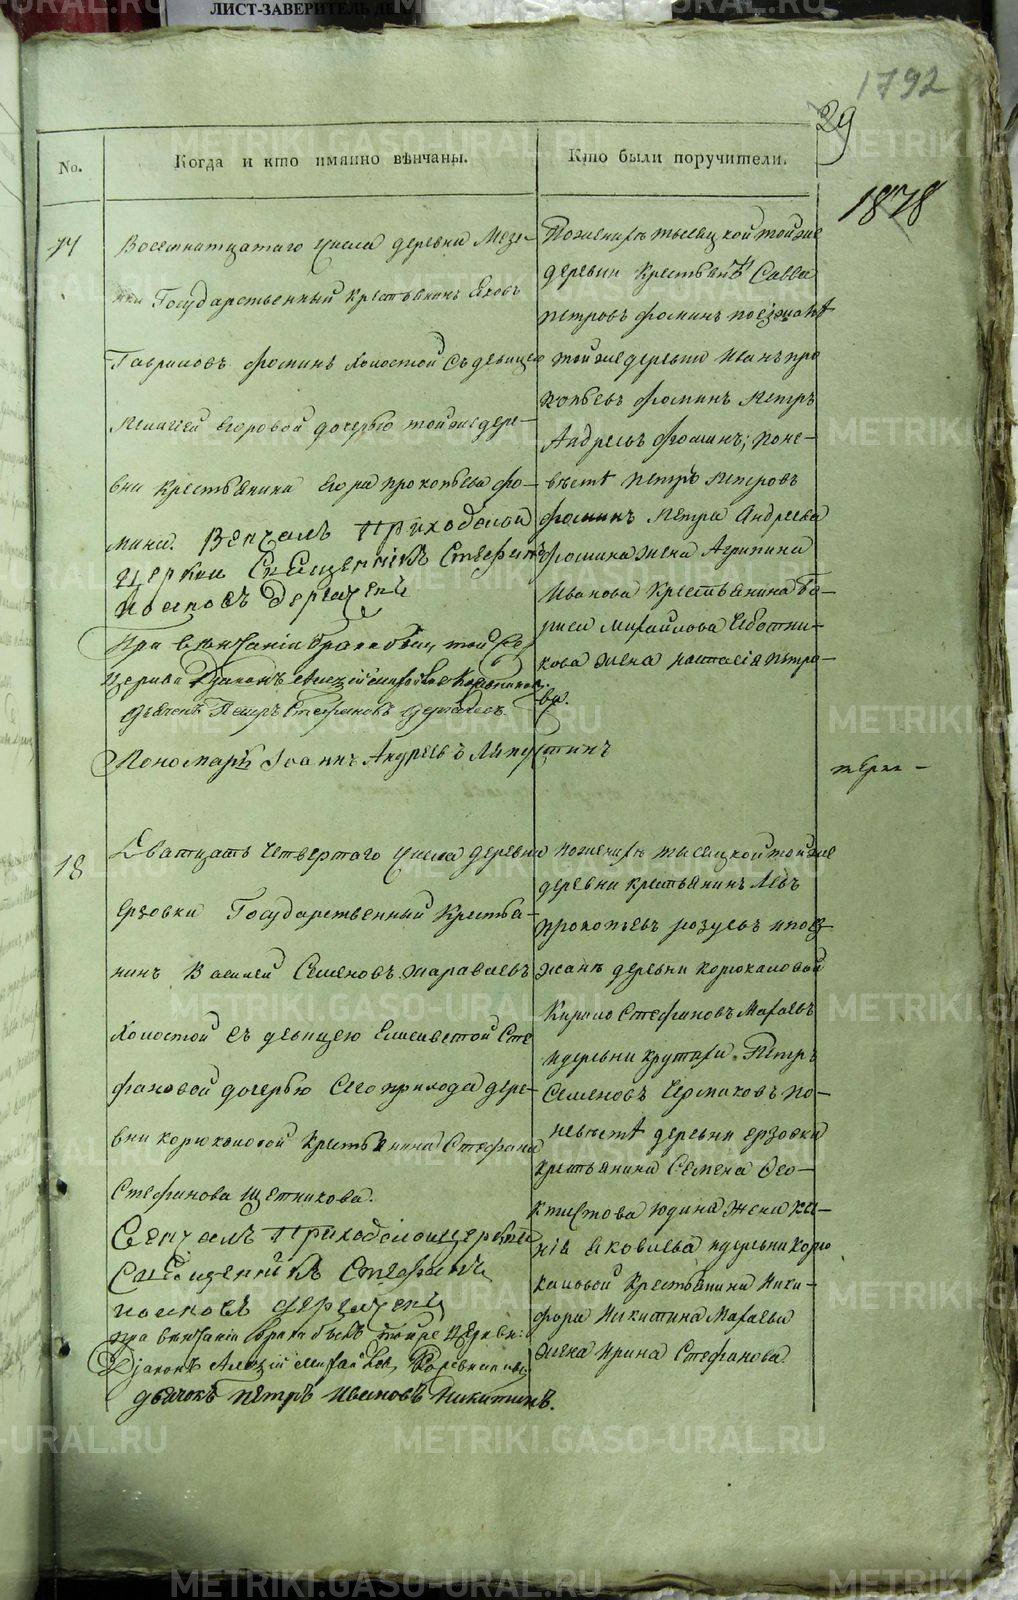 ЛИСТ-ЗАВЕРИТЕЛЬ ДЕ
1792
29
1878
No.
Когда и кто имянно вѣнчаны.
Кто были поручители.
17
Восемнатцатаго числа деревни Мезе-
нки Государственный крестьянинъ Яковъ
Гавриловъ Фоминъ холостой съ девицею
Пелагией Егоровой дочерью той же дере-
вни крестьянина Егора Прокопьева Фо-
мина. Венчалъ приходской
церкви Священникъ Стефанъ
При венчаніи брака были той же
церкви Діаконъ Алексій
дьячекъ Петръ Стефановъ
Пономарь Іоаннъ Андреевъ Ляпустинъ
По женихе тысецкой той же
деревни крестьянинъ Савва
Петровъ Фоминъ поезжане
той же деревни Иванъ Про
копьевъ Фоминъ Петръ
Андреевъ Фоминъ; по не-
весте Петръ Петровъ
Фоминъ Петра Андреева
Фомина жена Агрипина
Иванова крестьянина Бо-
риса Михайлова
кова жена Настасія Петро-
ва.
18
Дватцать четвертаго числа деревни
Ерзовки Государственный крестья-
нинъ Василей Семеновъ Жараваевъ
холостой съ девицею Елисаветой Сте
фановой дочерью сего прихода дере-
вни Корюкаловой крестьянина Стефана
Стефанова Щетникова.
Венчалъ приходской церкви
Священникъ Стефанъ
при венчаніи брака были той же церкви:
Діаконъ Алексій
дьячокъ Петръ Ивановъ Никитинъ.
по женихе тысецкой той же
деревни крестьянинъ Левъ
Прокопьевъ и поез-
жане деревни Корюкаловой
Кирило Стефановъ Махаевъ
и деревни Петръ
Семеновъ Чермаковъ по-
невесте деревни Ерзовки
крестьянина Семена Фео-
ктистова Юдина жена Ксе-
нія Яковлева и деревни Корю
каловой крестьянина Ники-
фора Никитина Махаева
жена Ирина Стефанова.
METRIKI.GASO-URAL.RU